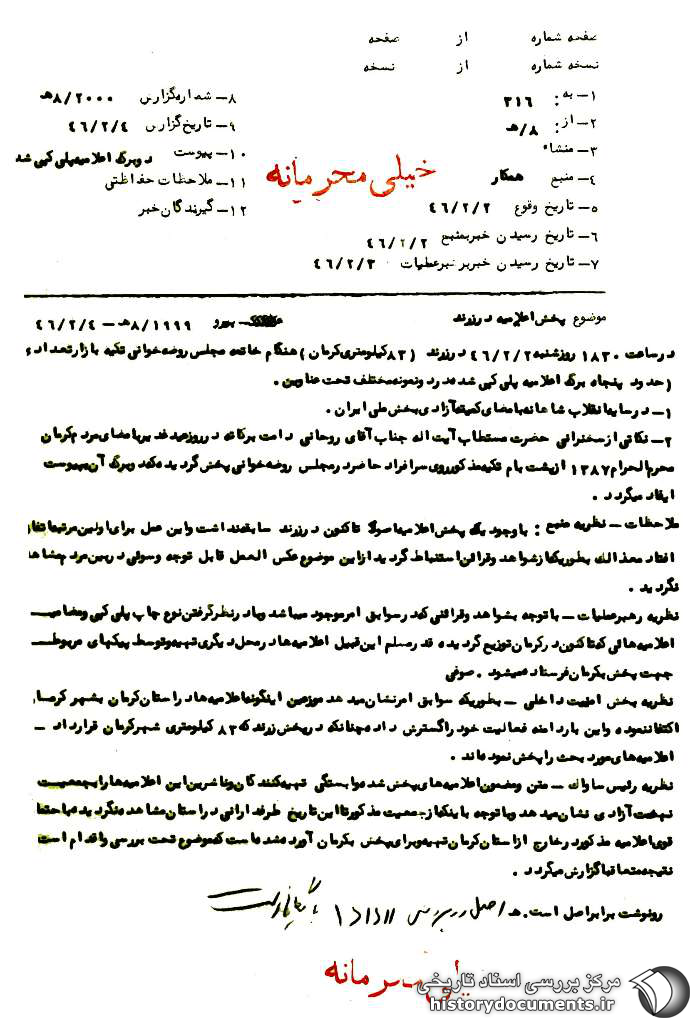 صفحه شماره از صفحه
نسخه شماره از نسخه
۱- به : ۳۱۶
۲- از : ۸/هـ
۳- منشاء
۴- منبع همکار
۵- تاریخ وقوع ۴۶/۲/۲
۶- تاریخ رسیدن خبر بمنبع ۴۶/۲/۲
۷- تاریخ رسیدن خبر برهبرعملیات ۴۶/۲/۳
۸- شماره گزارش ۸/۲۰۰۰هـ
۹- تاریخ گزارش ۴۶/۲/۴
۱۰- پیوست دو برگ اعلامیه پلی کپی شده
۱۱- ملاحظات حفاظتی
۱۲- گیرندگان خبر
خیلی محرمانه
موضوع پخش اعلامیه در زرند پیرو ۸/۱۹۹۹هـ - ۴۶/۲/۴
در ساعت ۱۸۳۰ روز شنبه ۴۶/۲/۲ در زرند (۸۳ کیلومتری کرمان) هنگام خاتمه مجلس روضه خوانی تکیه بازار تعدادی
(حدود پنجاه برگ اعلامیه پلی کپی شده در دو نمونه مختلف تحت عناوین .
۱- در سایه انقلاب شاهانه بامضای کمیته آزادی بخش ملی ایران .
۲- نکاتی از سخنرانی حضرت مستطاب آیت اله جناب آقای روحانی دامت برکاته در روز عید غدیر بامضای مردم کرمان
محرم الحرام ۱۳۸۷ از پشت بام تکیه مذکور روی سر افراد حاضر در مجلس روضه خوانی پخش گردیده که دو برگ آن بپیوست
ایفاد میگردد .
ملاحظات - نظریه منبع : با وجودیکه پخش اعلامیه اصولا تاکنون در زرند سابقه نداشت و این عمل برای اولین مرتبه اتفاق
افتاد معذالک بطوریکه از شواهد و قرائن استنباط گردید از این موضوع عکس العمل قابل توجه و سوئی در بین مردم مشاهده
نگردید .
نظریه رهبرعملیات - با توجه بشواهد و قرائنی که در سوابق امر موجود میباشد و با در نظر گرفتن نوع چاپ پلی کپی و مضامین
اعلامیه هائی که تاکنون در کرمان توزیع گردیده قدر مسلم این قبیل اعلامیه ها در محل دیگری تهیه و توسط پیکهای مربوطه
جهت پخش بکرمان فرستاده میشود . صوفی
نظریه بخش امنیت داخلی - بطوریکه سوابق امر نشان میدهد موزعین اینگونه اعلامیه ها در استان کرمان بشهر کرمان
اکتفا ننموده و این بار دامنه فعالیت خود را گسترش داده چنانکه در بخش زرند که ۸۳ کیلومتری شهر کرمان قرار دارد -
اعلامیه های مورد بحث را پخش نموده اند .
نظریه رئیس ساواک - متن و مضمون اعلامیه های پخش شده وابستگی تهیه کنندگان و ناشرین این اعلامیه ها را بجمعیت
نهضت آزادی نشان میدهد و با توجه باینکه از جمعیت مذکور تا این تاریخ طرفدارانی در استان مشاهده نگردیده باحتمال
قوی اعلامیه مذکور در خارج از استان کرمان تهیه و برای پخش بکرمان آورده شده است که موضوع تحت بررسی و اقدام است
نتیجه متعاقبا گزارش میگردد .
رونوشت برابر اصل است . هـ/ اصل در پرونده
محرمانه
مرکز بررسی اسناد تاریخی
historydocuments.ir